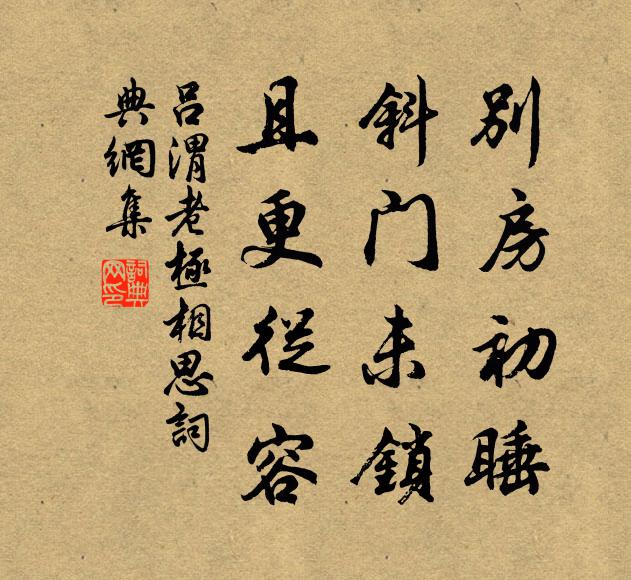 別房初睡
斜门未鎖
且更從容
呂渭老極相思詞
典網集
詞典网印